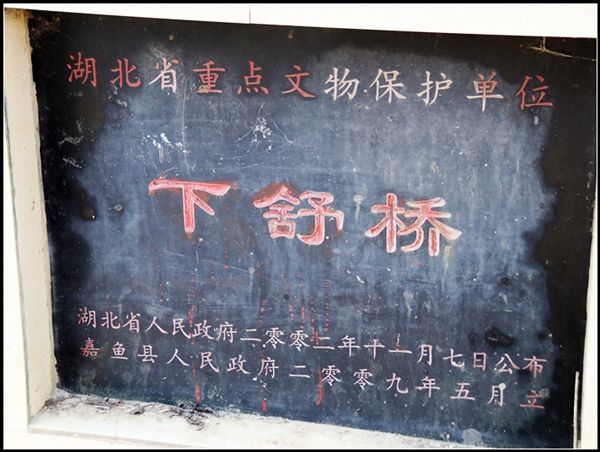 湖北省重点文物保护单位
下舒桥
湖北省人民政府二零零二年十一月七日公布
嘉鱼县人民政府二零零九年五月立